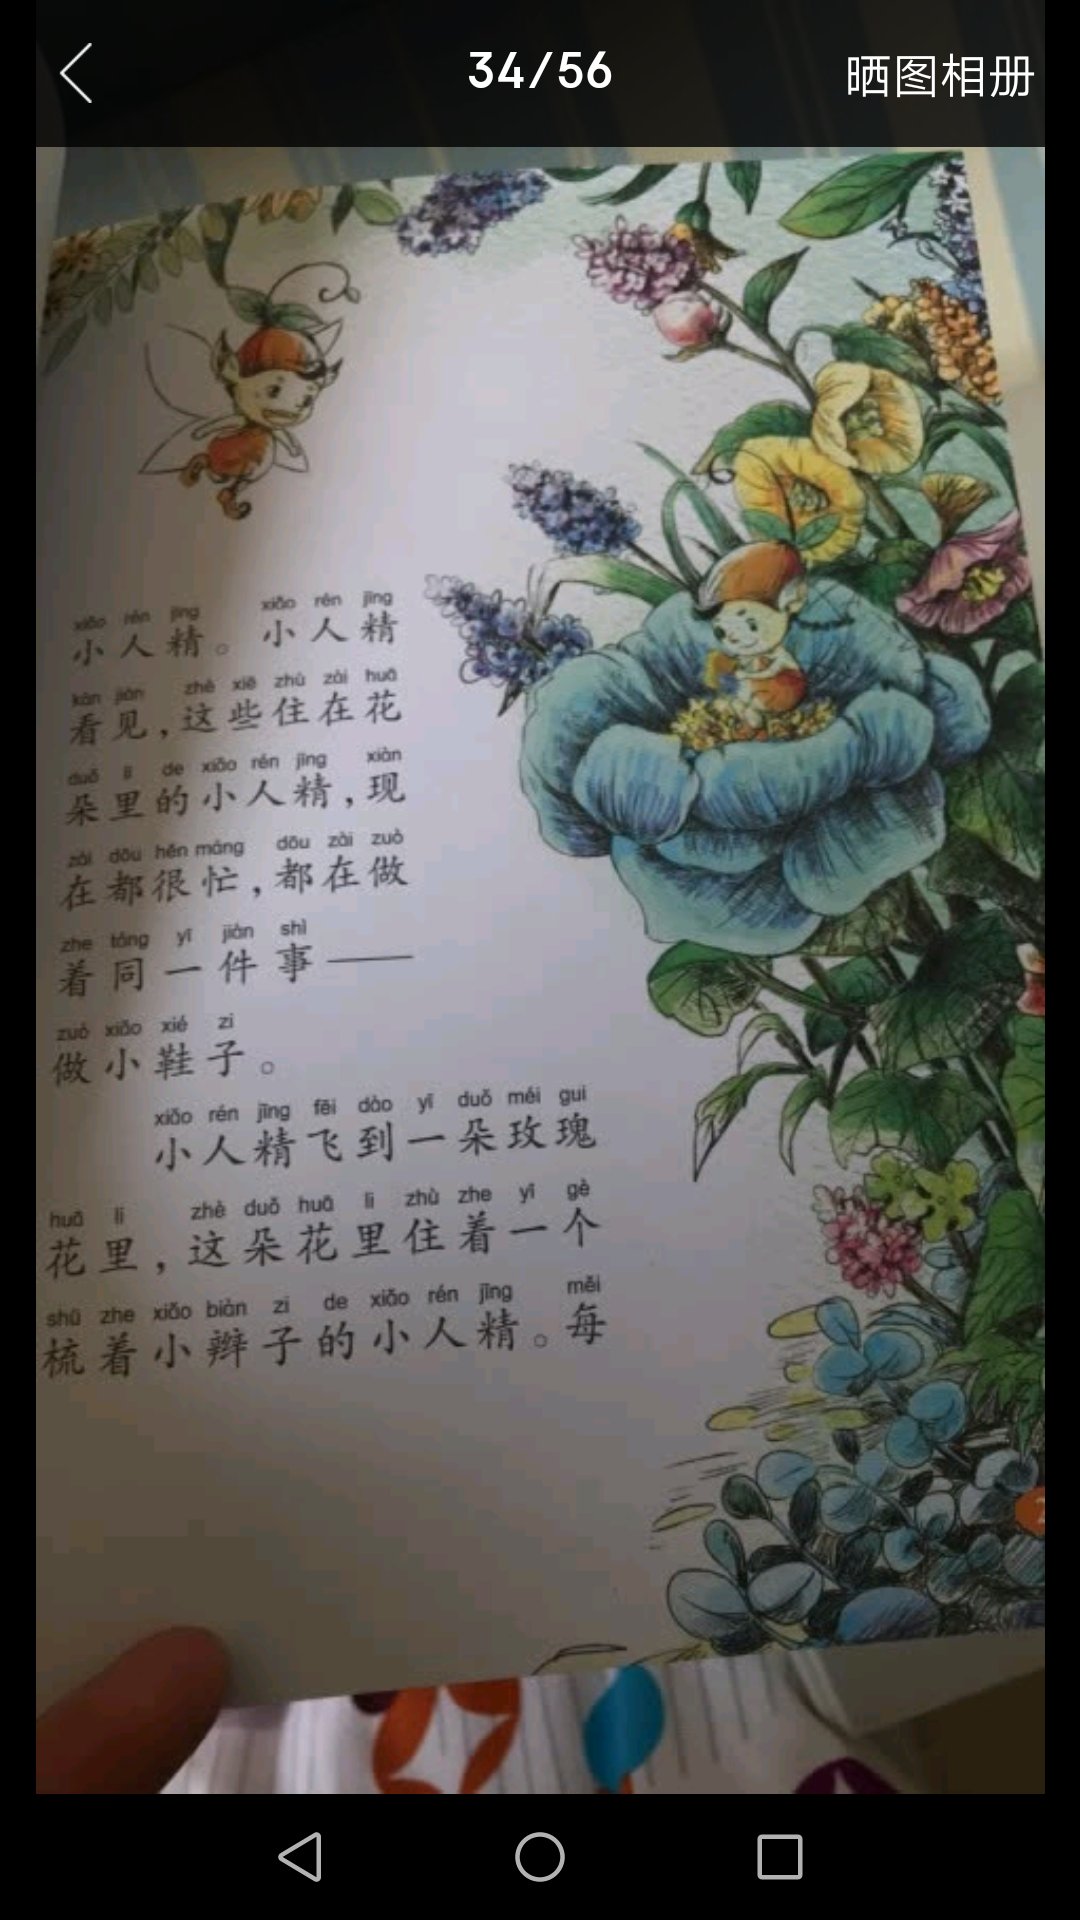 34/56
晒图相册
xiǎo rén jīng xiǎo rén jīng
小人精。小人精
kàn jiàn zhè xiē zhù zài huā
看见,这些住在花
duǒ li de xiǎo rén jīng xiàn
朵里的小人精,现
zài dōu hěn máng dōu zài zuò
在都很忙,都在做
zhe tóng yī jiàn shì
着同一件事——
zuò xiǎo xié zi
做小鞋子。
xiǎo rén jīng fēi dào yī duǒ méi gui
小人精飞到一朵玫瑰
huā li zhè duǒ huā li zhù zhe yī gè
花里,这朵花里住着一个
shū zhe xiǎo biàn zi de xiǎo rén jīng měi
梳着小辫子的小人精。每